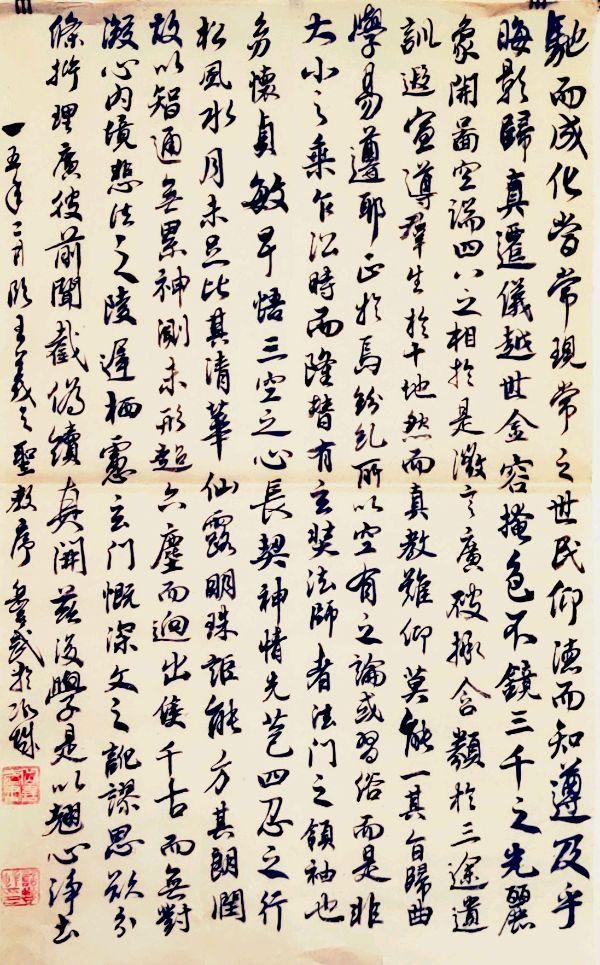 馳而成化當常現常之世民仰德而知遵及乎
晦影歸真遷儀越世金容掩色不鏡三千之光麗
象開圖空端四八之相於是微言廣被拯含類於三途遺
訓遐宣導羣生於十地然而真教難仰莫能一其旨歸曲
學易遵耶正於焉紛糺所以空有之論或習俗而是非
大小之乘乍沿時而隆替有玄奘法師者法門之領袖也
幼懷貞敏早悟三空之心長契神情先苞四忍之行
松風水月未足比其清華仙露明珠詎能方其朗潤
故以智通無累神測未形超六塵而迥出隻千古而無對
凝心內境悲法之陵遲栖慮玄門慨深文之訛謬思欲分
條析理廣彼前聞截偽續真開茲後學是以翹心淨土
一五年二月臨王羲之聖教序